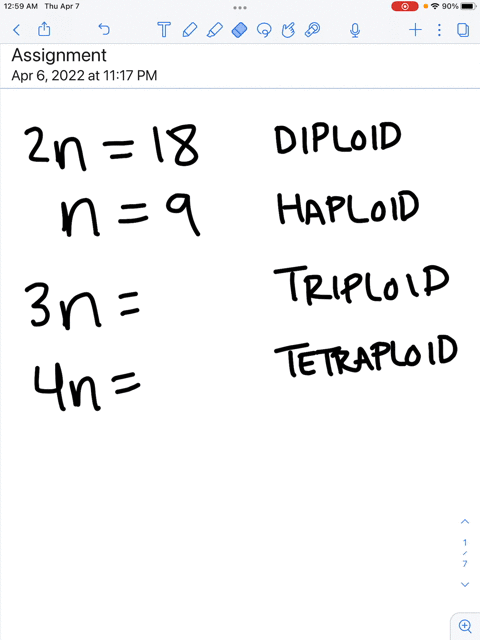 12:59 AM Thu Apr 7 90%
Assignment
Apr 6, 2022 at 11:17 PM
2n = 18 DIPLOID
n = 9 HAPLOID
3n = TRIPLOID
4n = TETRAPLOID
1
/
7